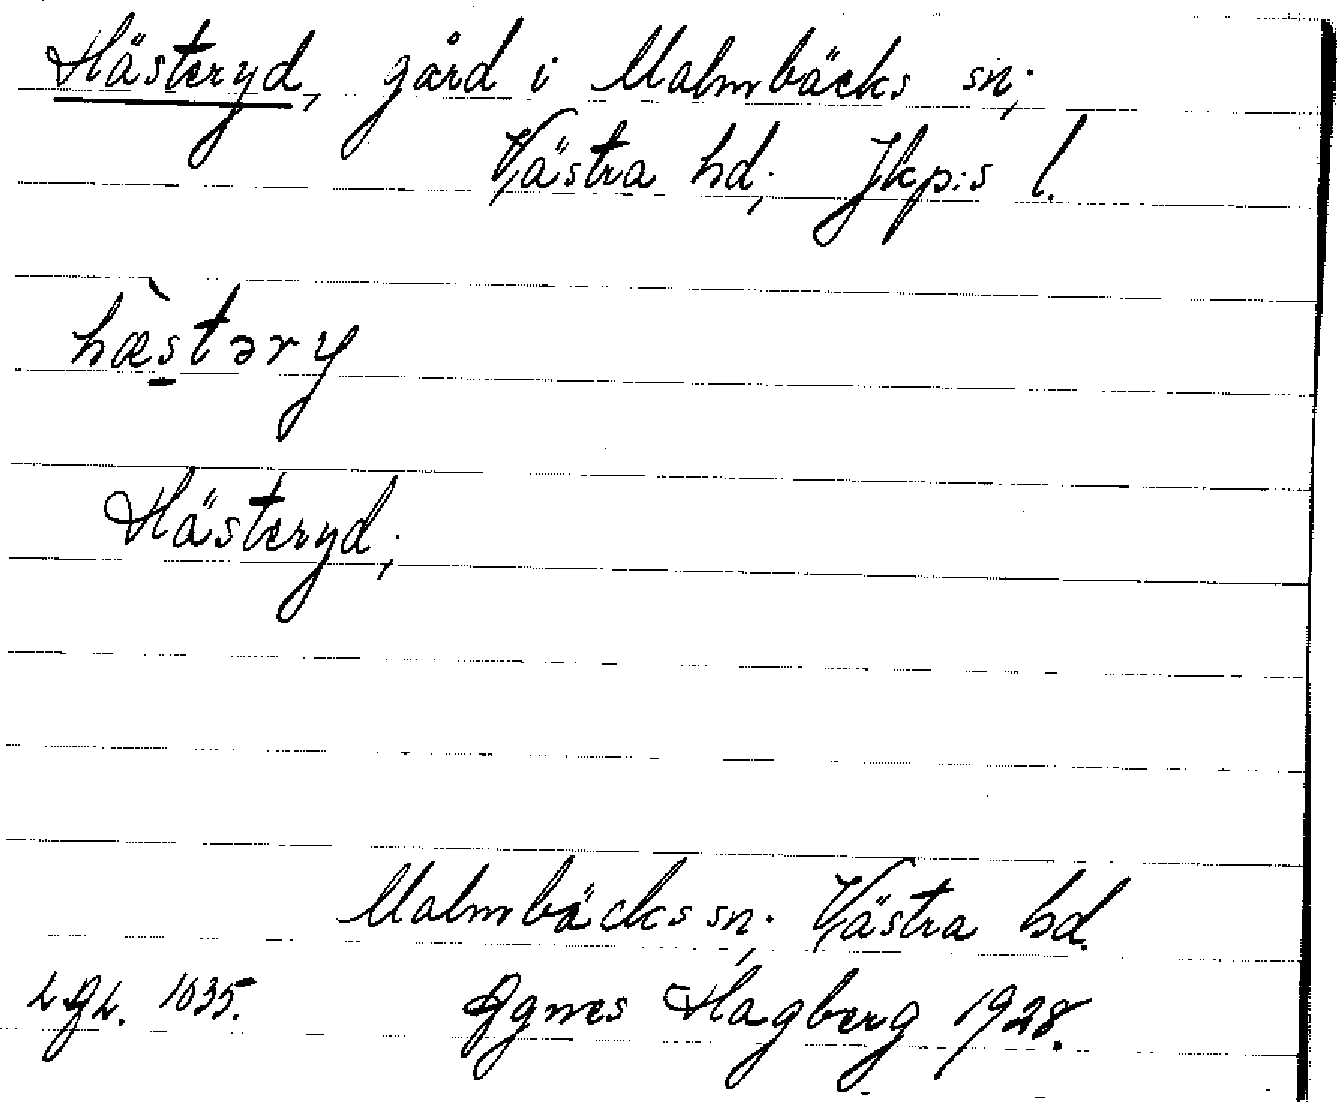 Hästeryd, gård i Malmbäcks sn;
Västra hd; Jkp:s l.
hæ̀stəry
Hästeryd;
Malmbäcks sn; Västra hd.
Agnes Hagberg 1928.
1035.